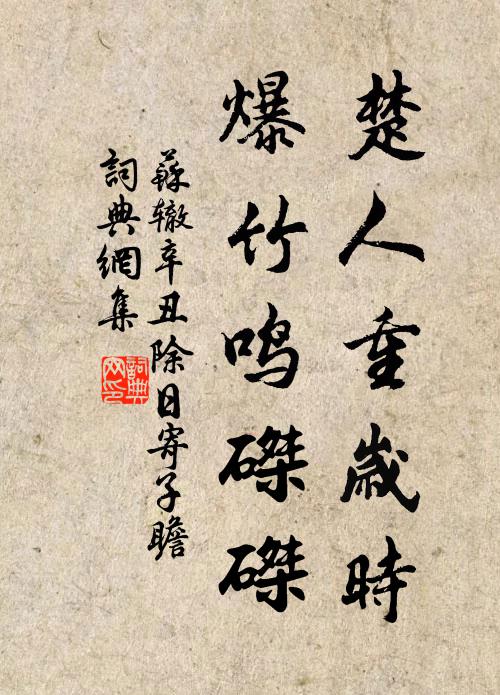 楚人重歲時
爆竹鸣磔磔
蘇辙辛丑除日寄子瞻
詞典網集
詞典网印